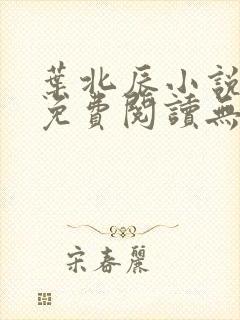 葉北辰小說
免費閱讀無
宋春麗